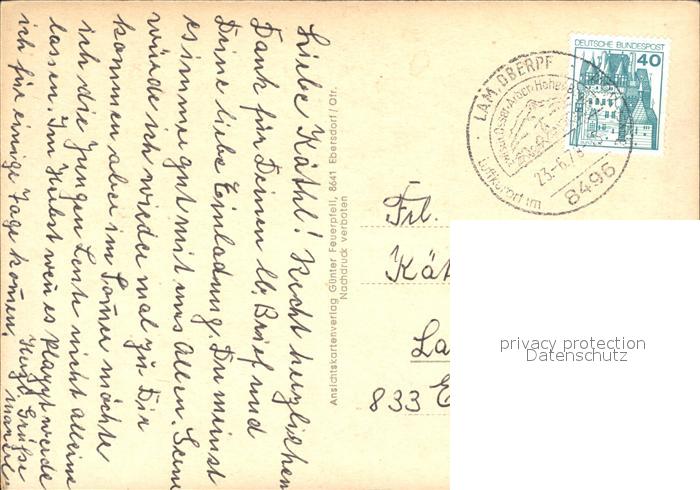 Liebe Käthl! Recht herzlichen
Dank für Deinen lb. Brief und
Deine liebe Einladung. Du meinst
es immer gut mit uns Allen. Gerne
würde ich wieder mal zu Dir
kommen aber im Somer möchte
ich die Jungen Leute nicht alleine
lassen. Im Herbst wen es klappt werde
ich für einige Tage komen.
Herzl. Grüße
Ansichtskartenverlag Günter Feuerpfeil, 8641 Ebersdorf/Ofr.
Nachdruck verboten
DEUTSCHE BUNDESPOST
40
LAM, OBERPF
23.-6.7
8496
Luftkurort im
Frl.
Kät
La
833 E
privacy protection
Datenschutz